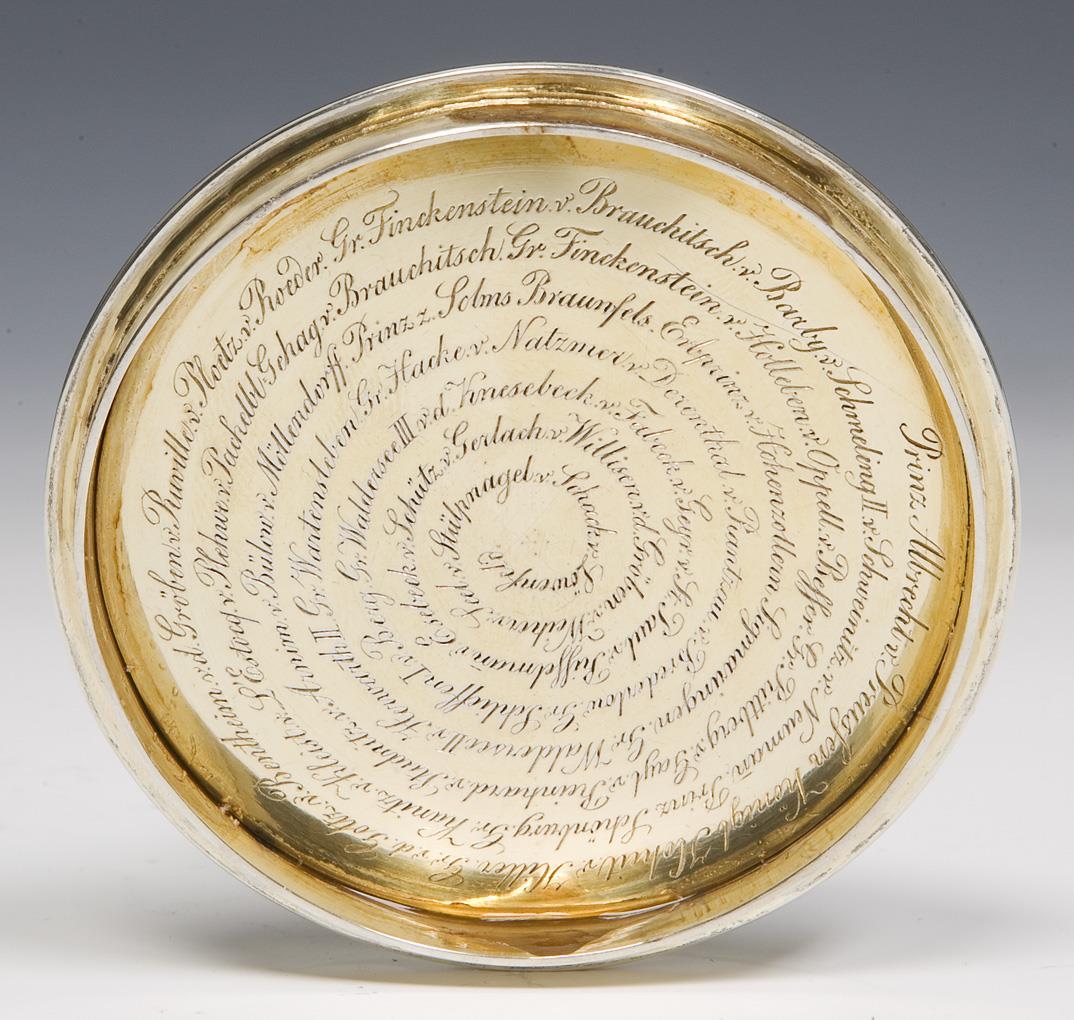 Prinz Albrecht v. Preussen Königl. Hoheit v. Hiller. Gr. v. d. Goltz. v. Bentheim. v. d. Gröben. v. Rumille v. Ploetz. v. Roeder. Gr. Finckenstein. v. Brauchitsch. v. Barby. v. Schmeling II. v. Schweinitz. v. Neumann.
Prinz Schönburg. Gr. Kanitz. v. Kleist. v. L'Estocq. v. Plehwe. v. Pachelbl Gehag. v. Brauchitsch. Gr. Finckenstein. v. Holleben. v. Oppell. v. Gr.
v. Gayl. v. Reinhard. v. v. Arnim. v. Bülow. v. Möllendorff. Prinz z. Solms Braunfels. Erbprinz v. Hohenzollern Sigmaringen.
Gr. Waldersee II v. Herwarth II Gr. Wartensleben. Gr. Hacke. v. Natzmer. v. Derenthal. v. Rantzau. v. Bredenlow.
Gr. Schlieffen I. v. Berg. Gr. Waldersee III. v. d. Knesebeck. v. Fabeck. v. Geyr. v. St. Paul.
v. Esebeck. v. Schütz. v. Gerlach. v. Willisen. v. d. Gröben. v. Weiher.
v. Stülpnagel. v. Schack. v. Löwenfels